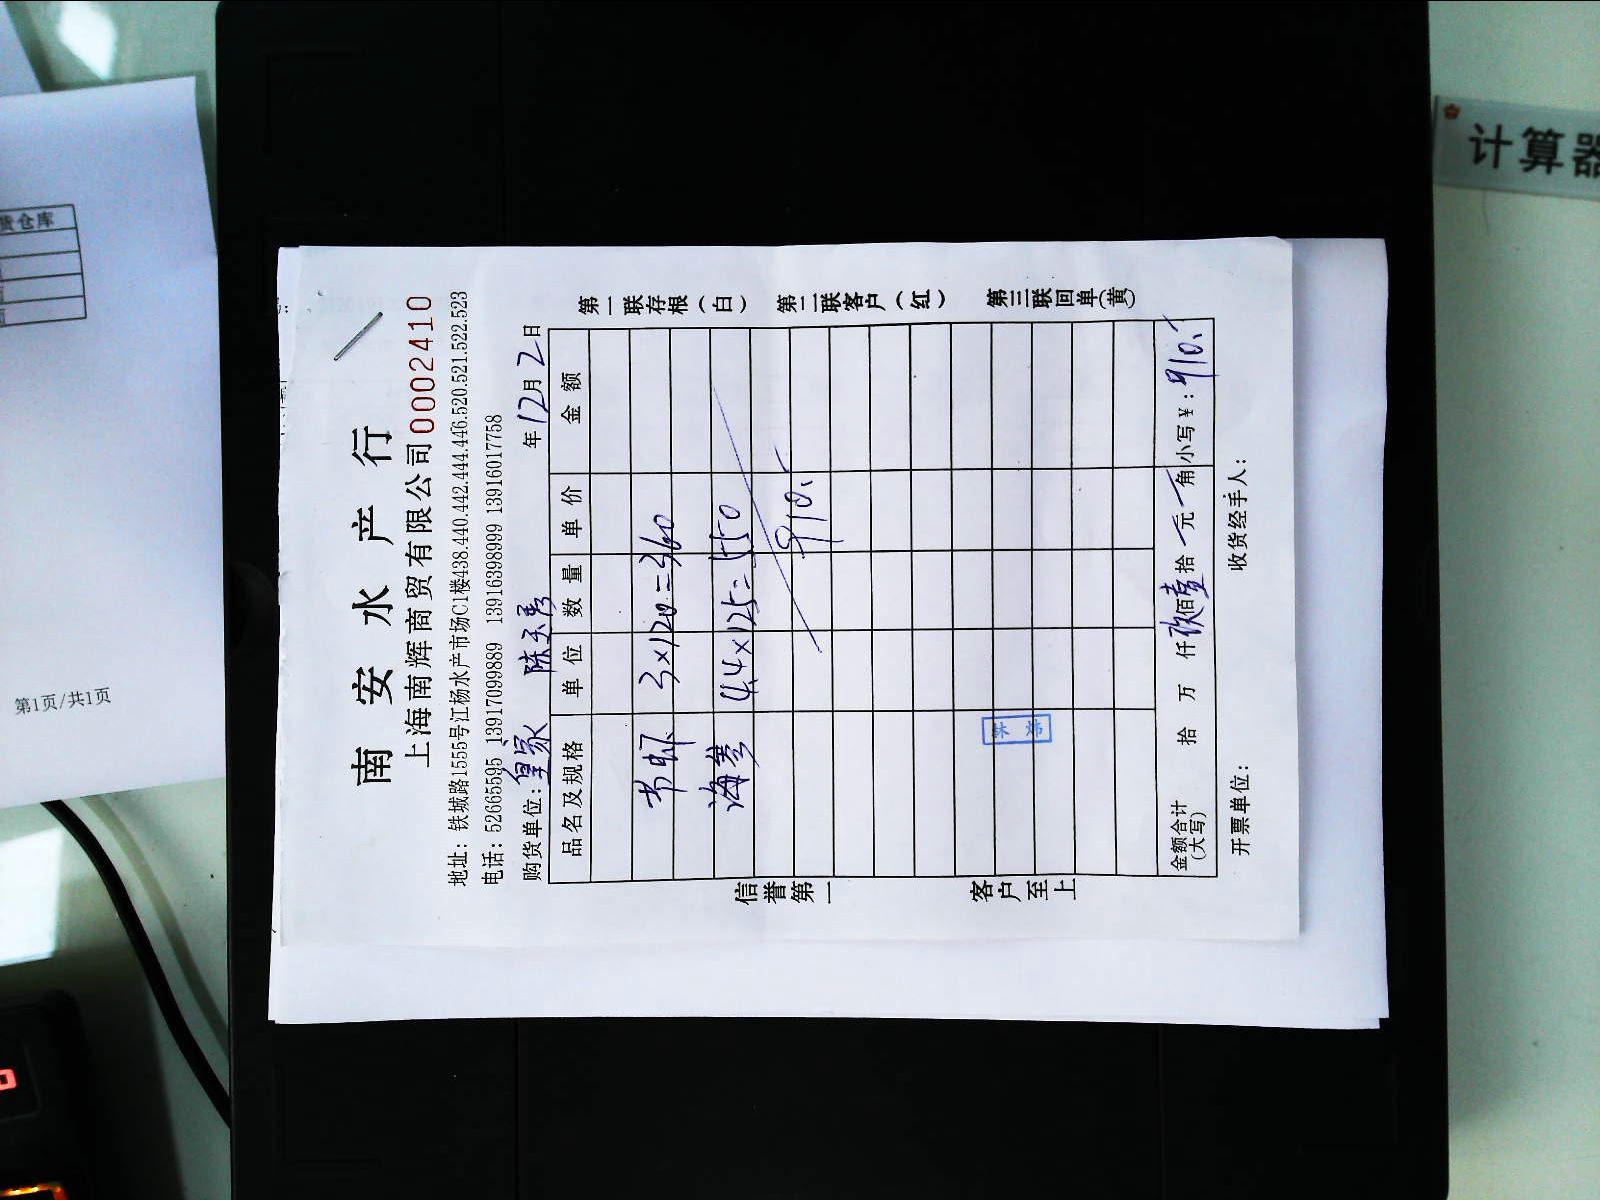 南安水产行
上海南辉商贸有限公司 0002410
地址: 铁城路1555号江杨水产市场C1楼438.440.442.444.446.520.521.522.523
电话: 52665595 13917099889 13916398999 13916017758
购货单位: 皇家 年 12月 2日
品名及规格 单位 数量 单价 金额
3×120=360
海参 4.4×125=550
910.
金额合计(大写) 拾 万 仟 玖佰壹拾 元 角 小写¥: 910.
开票单位: 收货经手人:
信誉第一 客户至上
第一联存根(白) 第二联客户(红) 第三联回单(黄)
货仓库
第1页/共1页
计算器